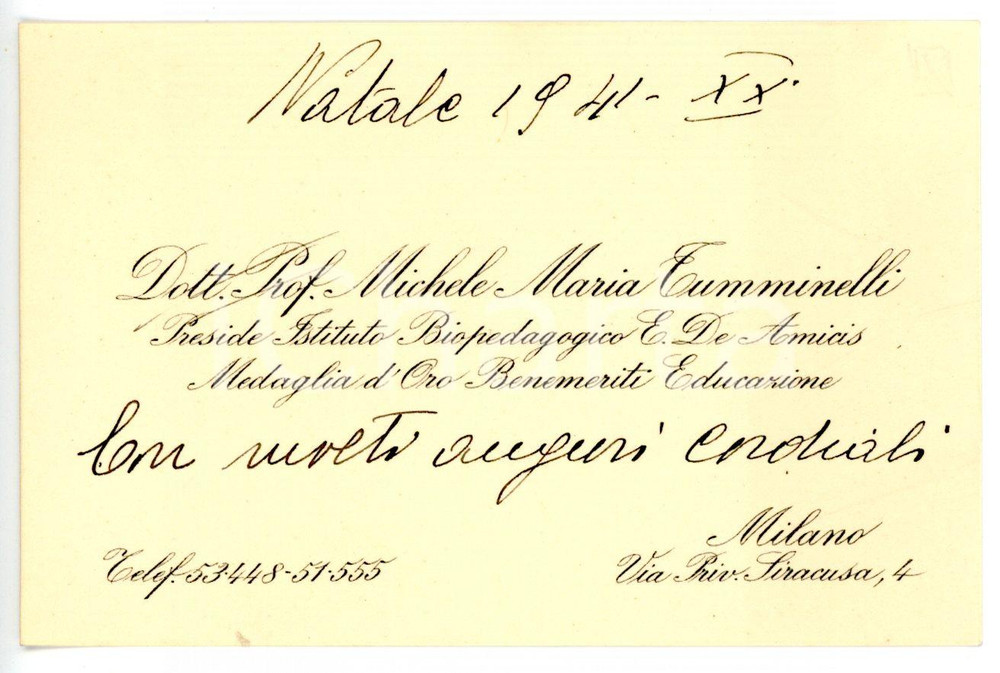 Natale 1941 - XX.
Dott. Prof. Michele Maria Tumminelli
Preside Istituto Biopedagogico E. De Amicis
Medaglia d'Oro Benemeriti Educazione
Con molti auguri cordiali
Milano
Telef. 53-448-51-555
Via Priv. Siracusa, 4